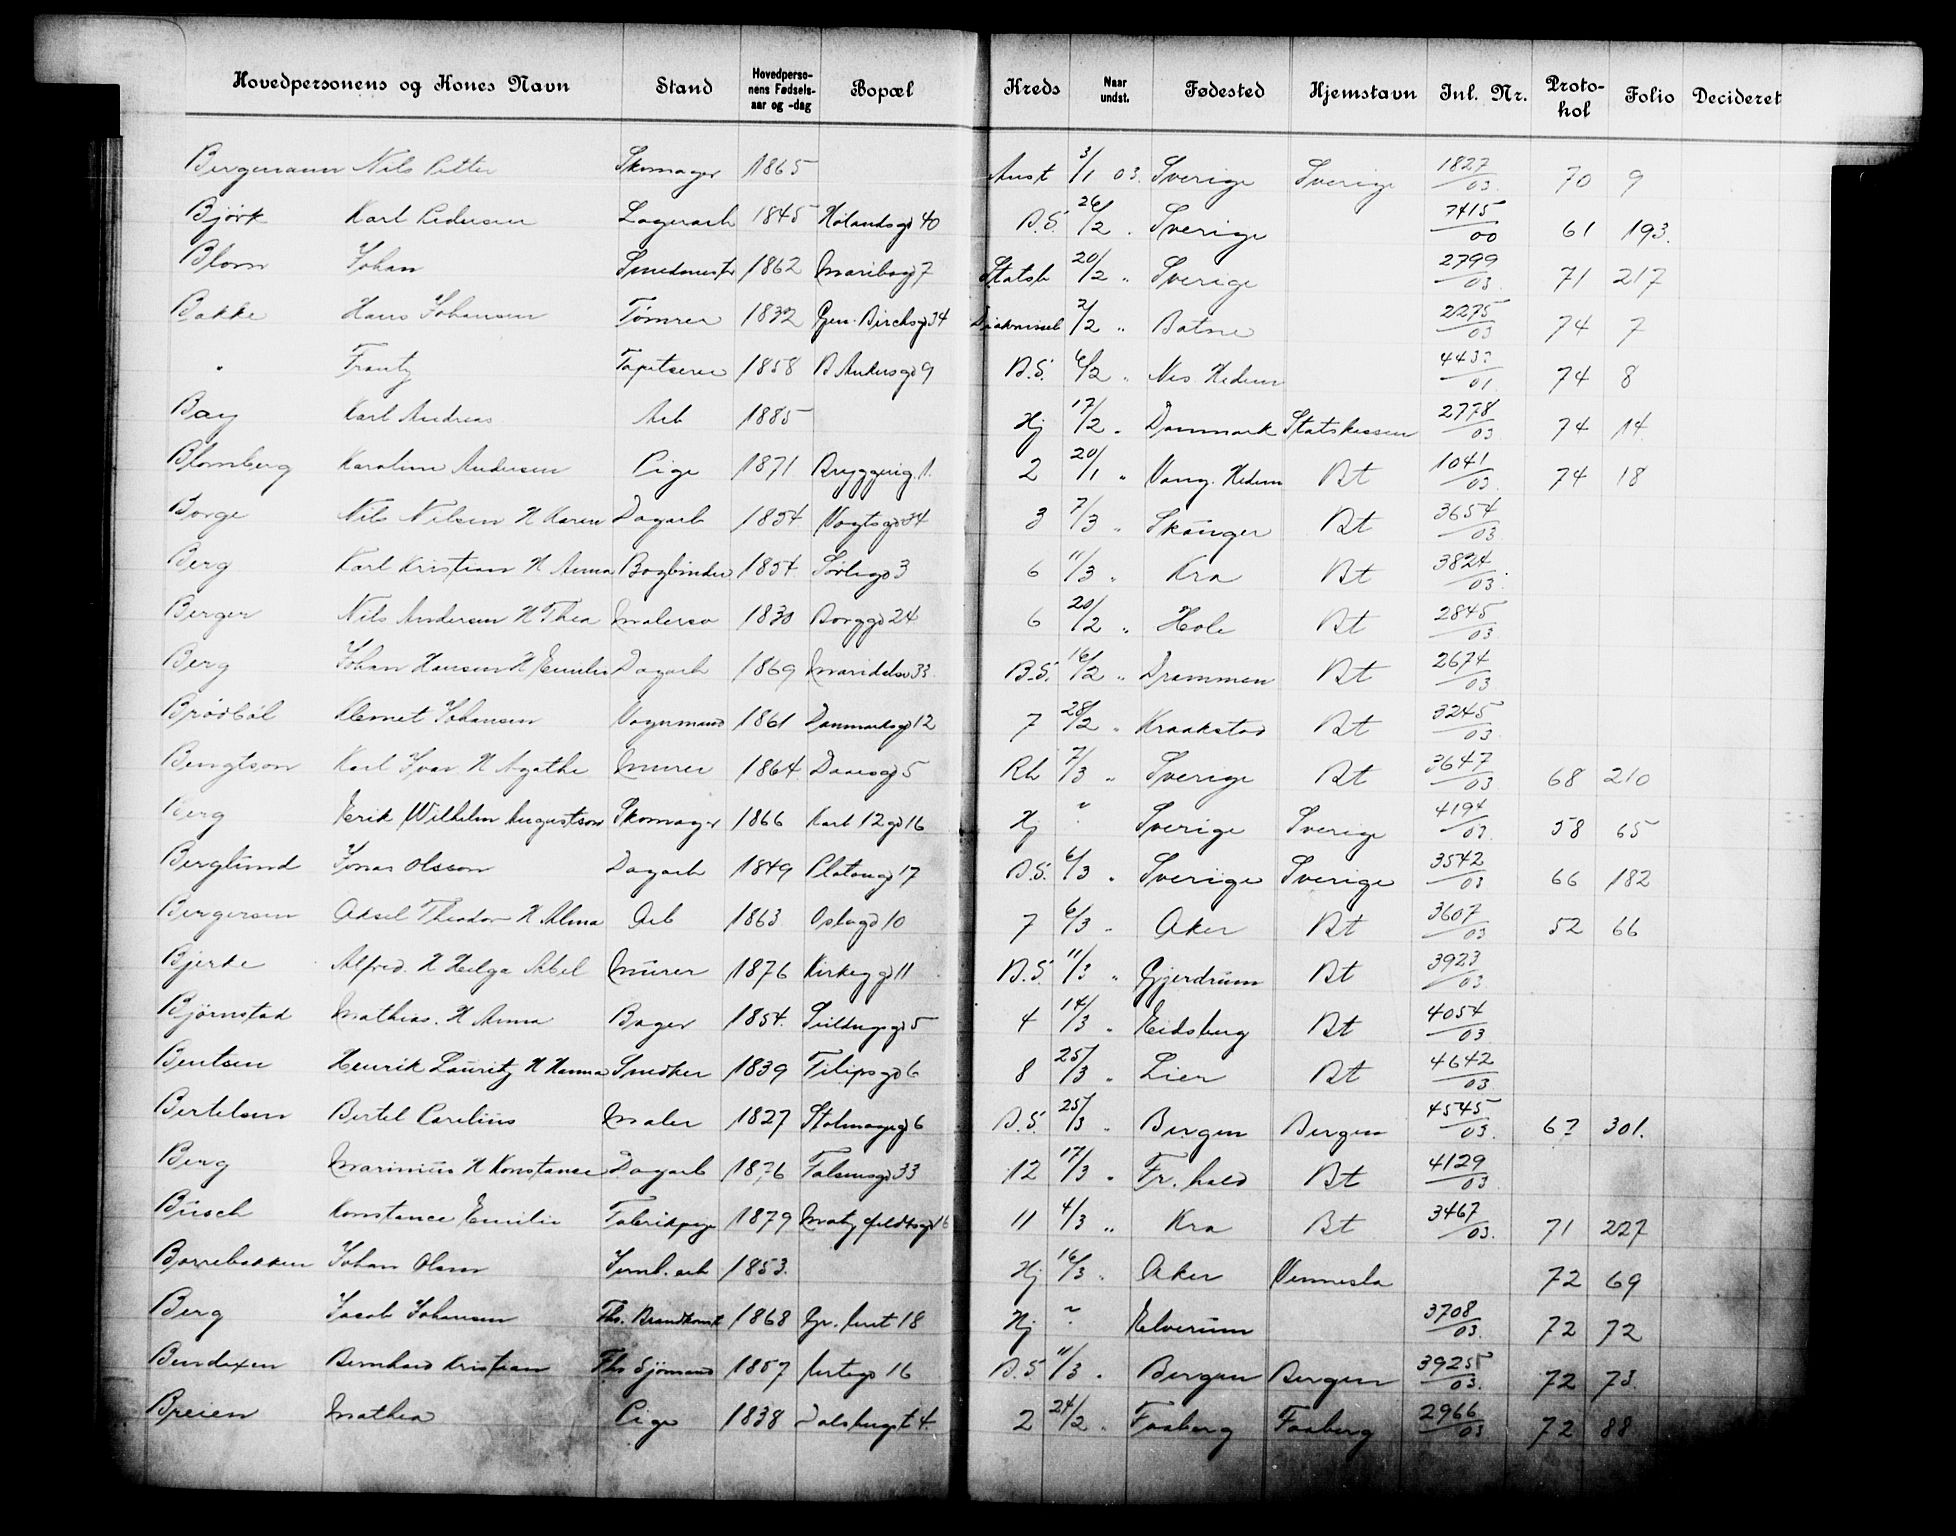 Hovedpersonens og Kones Navn Stand Hovedpersonens Fødselsaar og -dag Bopæl Kreds Naar undst. Fødested Hjemstavn Inl. Nr. Protokol Folio Decideret
Bergemann Nils Petter Skomager 1865 Anst 3/1 03. Sverige Sverige 1827/03 70 9
Bjørk Karl Pedersen Lagerarb 1845 Hølandsgd 40 B.S. 26/2 Sverige 7415/00 61 193.
Blom Johan Smedmestr 1862 Maribogd 7 Statsb 20/2 " Sverige 2799/03 71 217
Bakke Hans Johansen Tømrer 1832 Gen. Birchsgd 34 2/2 " Botne 2275/03 74 7
" Frantz Tapetserer 1858 B Ankersgd 9 B.S. 6/2 " Nes Hedem 443?/01 74 8
Bay Karl Andreas Arb 1885 Hj 17/2 " Danmark Statskassen 2778/03 74 14
Blomberg Karoline Andersen Pige 1871 Bryggerig. 1. 2 20/1 " Vang. Hedem Bt 1041/03 74 18
Borge Nils Nilsen H Karen Dagarb 1854 Vogtsgd 34 3 7/3 " Skånger Bt 3654/03
Berg Karl Kristian H Anna Bogbinder 1854 Sørligd 3 6 11/3 " Kra Bt 3824/03
Berger Nils Andersen H Thea Malersv 1830 Borggd 24 6 20/2 " Hole Bt 2845/03
Berg Johan Hansen H Emilie Dagarb 1869 Maridalsv 33 B.S. 16/2 " Drammen Bt 2674/03
Brödböl Klemet Johansen Vognmand 1861 Danmarksgd 12 7 28/2 " Kraakstad Bt 3245/03
Bengtson Karl Ivar H Agathe Murer 1864 Daaesgd 5 Rh 7/3 " Sverige Bt 3647/03 68 210
Berg Erik Wilhelm Augustson Skomager 1866 Karl 12 gd 16 Hj " Sverige Sverige 4194/03 58 65
Berglund Jonas Olsson Dagarb 1849 Platougd 17 B.S. 6/3 " Sverige Sverige 3542/03 66 182
Bergersen Adsel Theodor H Alma Arb 1863 Oslogd 10 7 6/3 " Aker Bt 3607/03 52 66
Bjerke Alfred. H Helga Abel Murer 1876 Kirkeggd 11 B.S. 11/3 " Gjerdrum Bt 3923/03
Bjørnstad Mathias. H Anna Bager 1854. 5 4 14/3 " Eidsberg Bt 4054/03
Bentsen Henrik Lauritz H Hanna Snedker 1839 Filipsgd 6 8 25/3 " Lier Bt 4642/03
Bertelsen Bertel Carelius Maler 1827 Stolmagergd 6 B.S. 25/3 " Bergen Bergen 4545/03. 6? 301.
Berg Marinius H Konstance Dagarb 1876 Falsensgd 33 12 17/3 " Fr. hald Bt 4129/03
Busch Konstance Emilie Fabrikpige 1879 16 11 4/3 " Kra Bt 3467/03. 71 227
Borrebakken Johan Olsen Jernb. arb 1853. Hj 16/3 " Aker Vennesla 72 69
Berg Jacob Johansen Fhv. Brandkonst 1868 Gr. leret 18 Hj " Elverum 3708/03. 72 72
Bendixen Bernhard Kristian Fhv Sjömand 1857 Urtegd 16 B.S. 11/3 " Bergen Bergen 3925/03. 72 73.
Breien Mathea Pige 1838 Dalsbergst 4. 2 24/2 " Faaberg Faaberg 2966/03 72 88